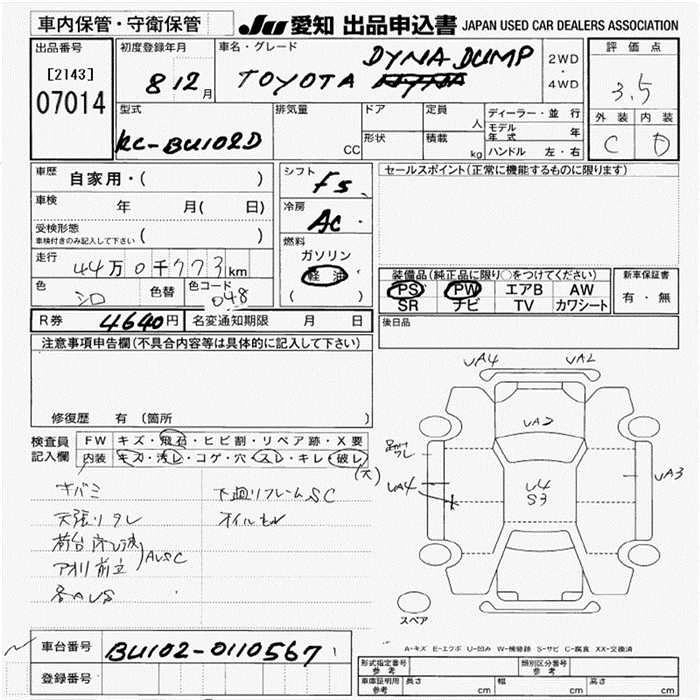 車内保管・守衛保管
JU 愛知 出品申込書 JAPAN USED CAR DEALERS ASSOCIATION
出品番号
[2143]
07014
初度登録年月
8 12月
車名・グレード
TOYOTA DYNA DUMP
2WD
・
4WD
評価点
3.5
外装 内装
C D
型式
KC-BU102D
排気量
CC
ドア
形状
定員
人
積載
kg
ディーラー・並行
モデル年式 年
ハンドル 左・右
車歴
自家用・( )
車検
年 月( 日)
受検形態
車検付きのみ記入して下さい ( )
走行
44万0千773km
色
シロ
色替
色コード
048
シフト
F5
冷房
AC
燃料
ガソリン
軽油
( )
セールスポイント(正常に機能するものに限ります)
装備品(純正品に限り○をつけてください)
PS PW エアB AW
SR ナビ TV カワシート
新車保証書
有・無
R券 4640円 名変通知期限 月 日
後日品
注意事項申告欄(不具合内容等は具体的に記入して下さい)
修復歴 有 (箇所 )
検査員
記入欄
FW キズ・飛石・ヒビ割・リペア跡・X要
内装 キズ・汚レ・コゲ・穴・スレ・キレ・破レ
(大)
キバミ
天張りタレ
荷台床凹波
アオリ前立
AUSC
各AUS
下廻リフレームSC
オイルモレ
UA4
UA2
UA2
UA4
UA3
U4
S3
スペア
A-キズ E-エクボ U-凹み W-補修跡 S-サビ C-腐食 XX-交換済
車台番号
BU102-0110567
登録番号
形式指定番号
参考
類別区分番号
参考
車庫証明用
参考
長さ cm
幅 cm
高さ cm